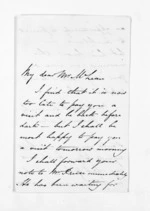 My dear Mr McLean
I find that it is now
too late to pay you a
visit and be back before
dark - but I shall be
most happy to pay you
a visit tomorrow morning
I shall forward your
note to Mr immediately
He has been waiting for